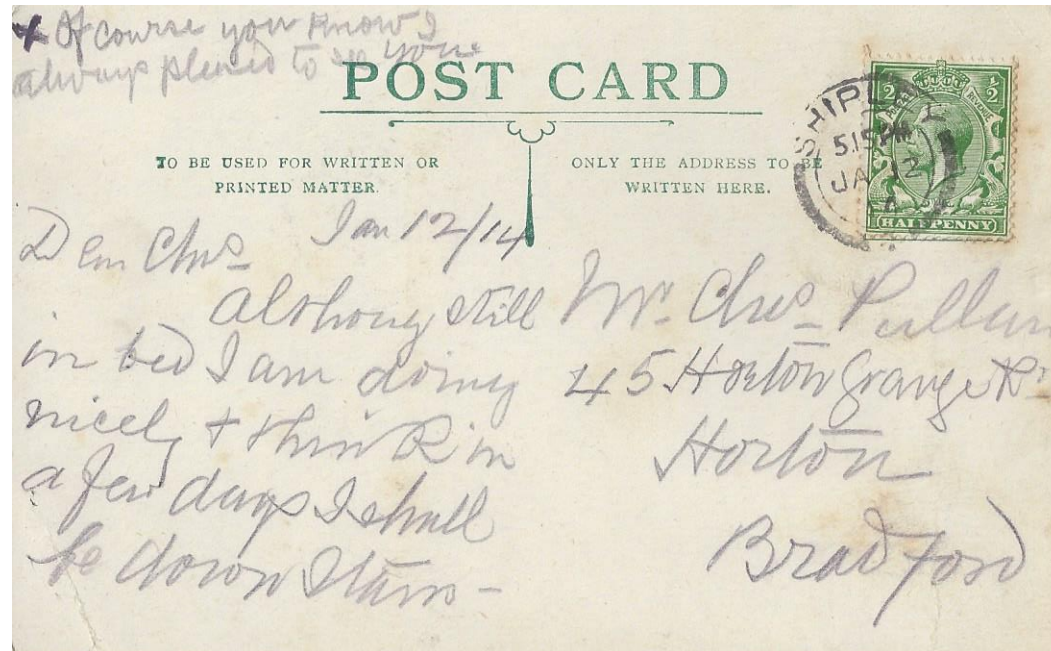 x Of course you know I
always pleased to see you
POST CARD
TO BE USED FOR WRITTEN OR
PRINTED MATTER.
ONLY THE ADDRESS TO BE
WRITTEN HERE.
1/2 1/2
POSTAGE REVENUE
HALFPENNY
SHIPLEY
515PM
JA 12
14
Jan 12/14
Dear Chas
Althoug still
in bed I am doing
nicely + think in
a few days I shall
be down stairs -
Mr. Chas Pullan
45 Horton Grange Rd
Horton
Bradford